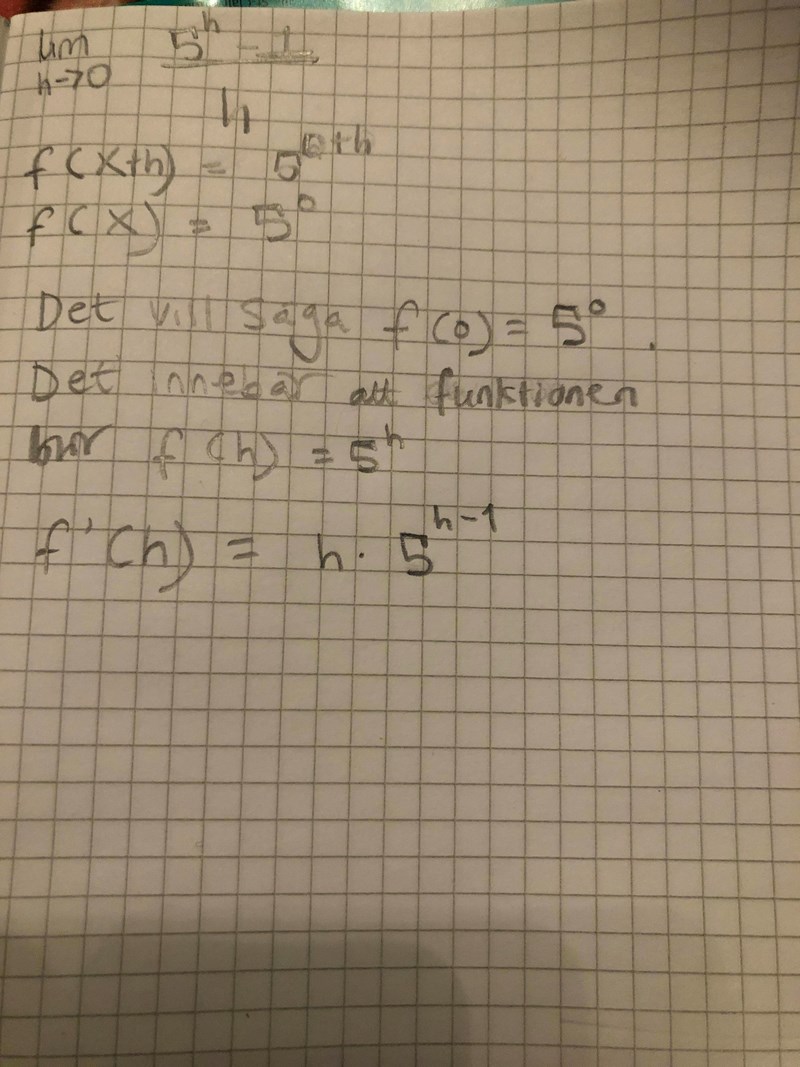 lim 5^h - 1
h→0 h
f(x+h) = 5^0+h
f(x) = 5^0
Det vill säga f(0) = 5^0.
Det innebär att funktionen
f(h) = 5^h
f'(h) = h · 5^h-1